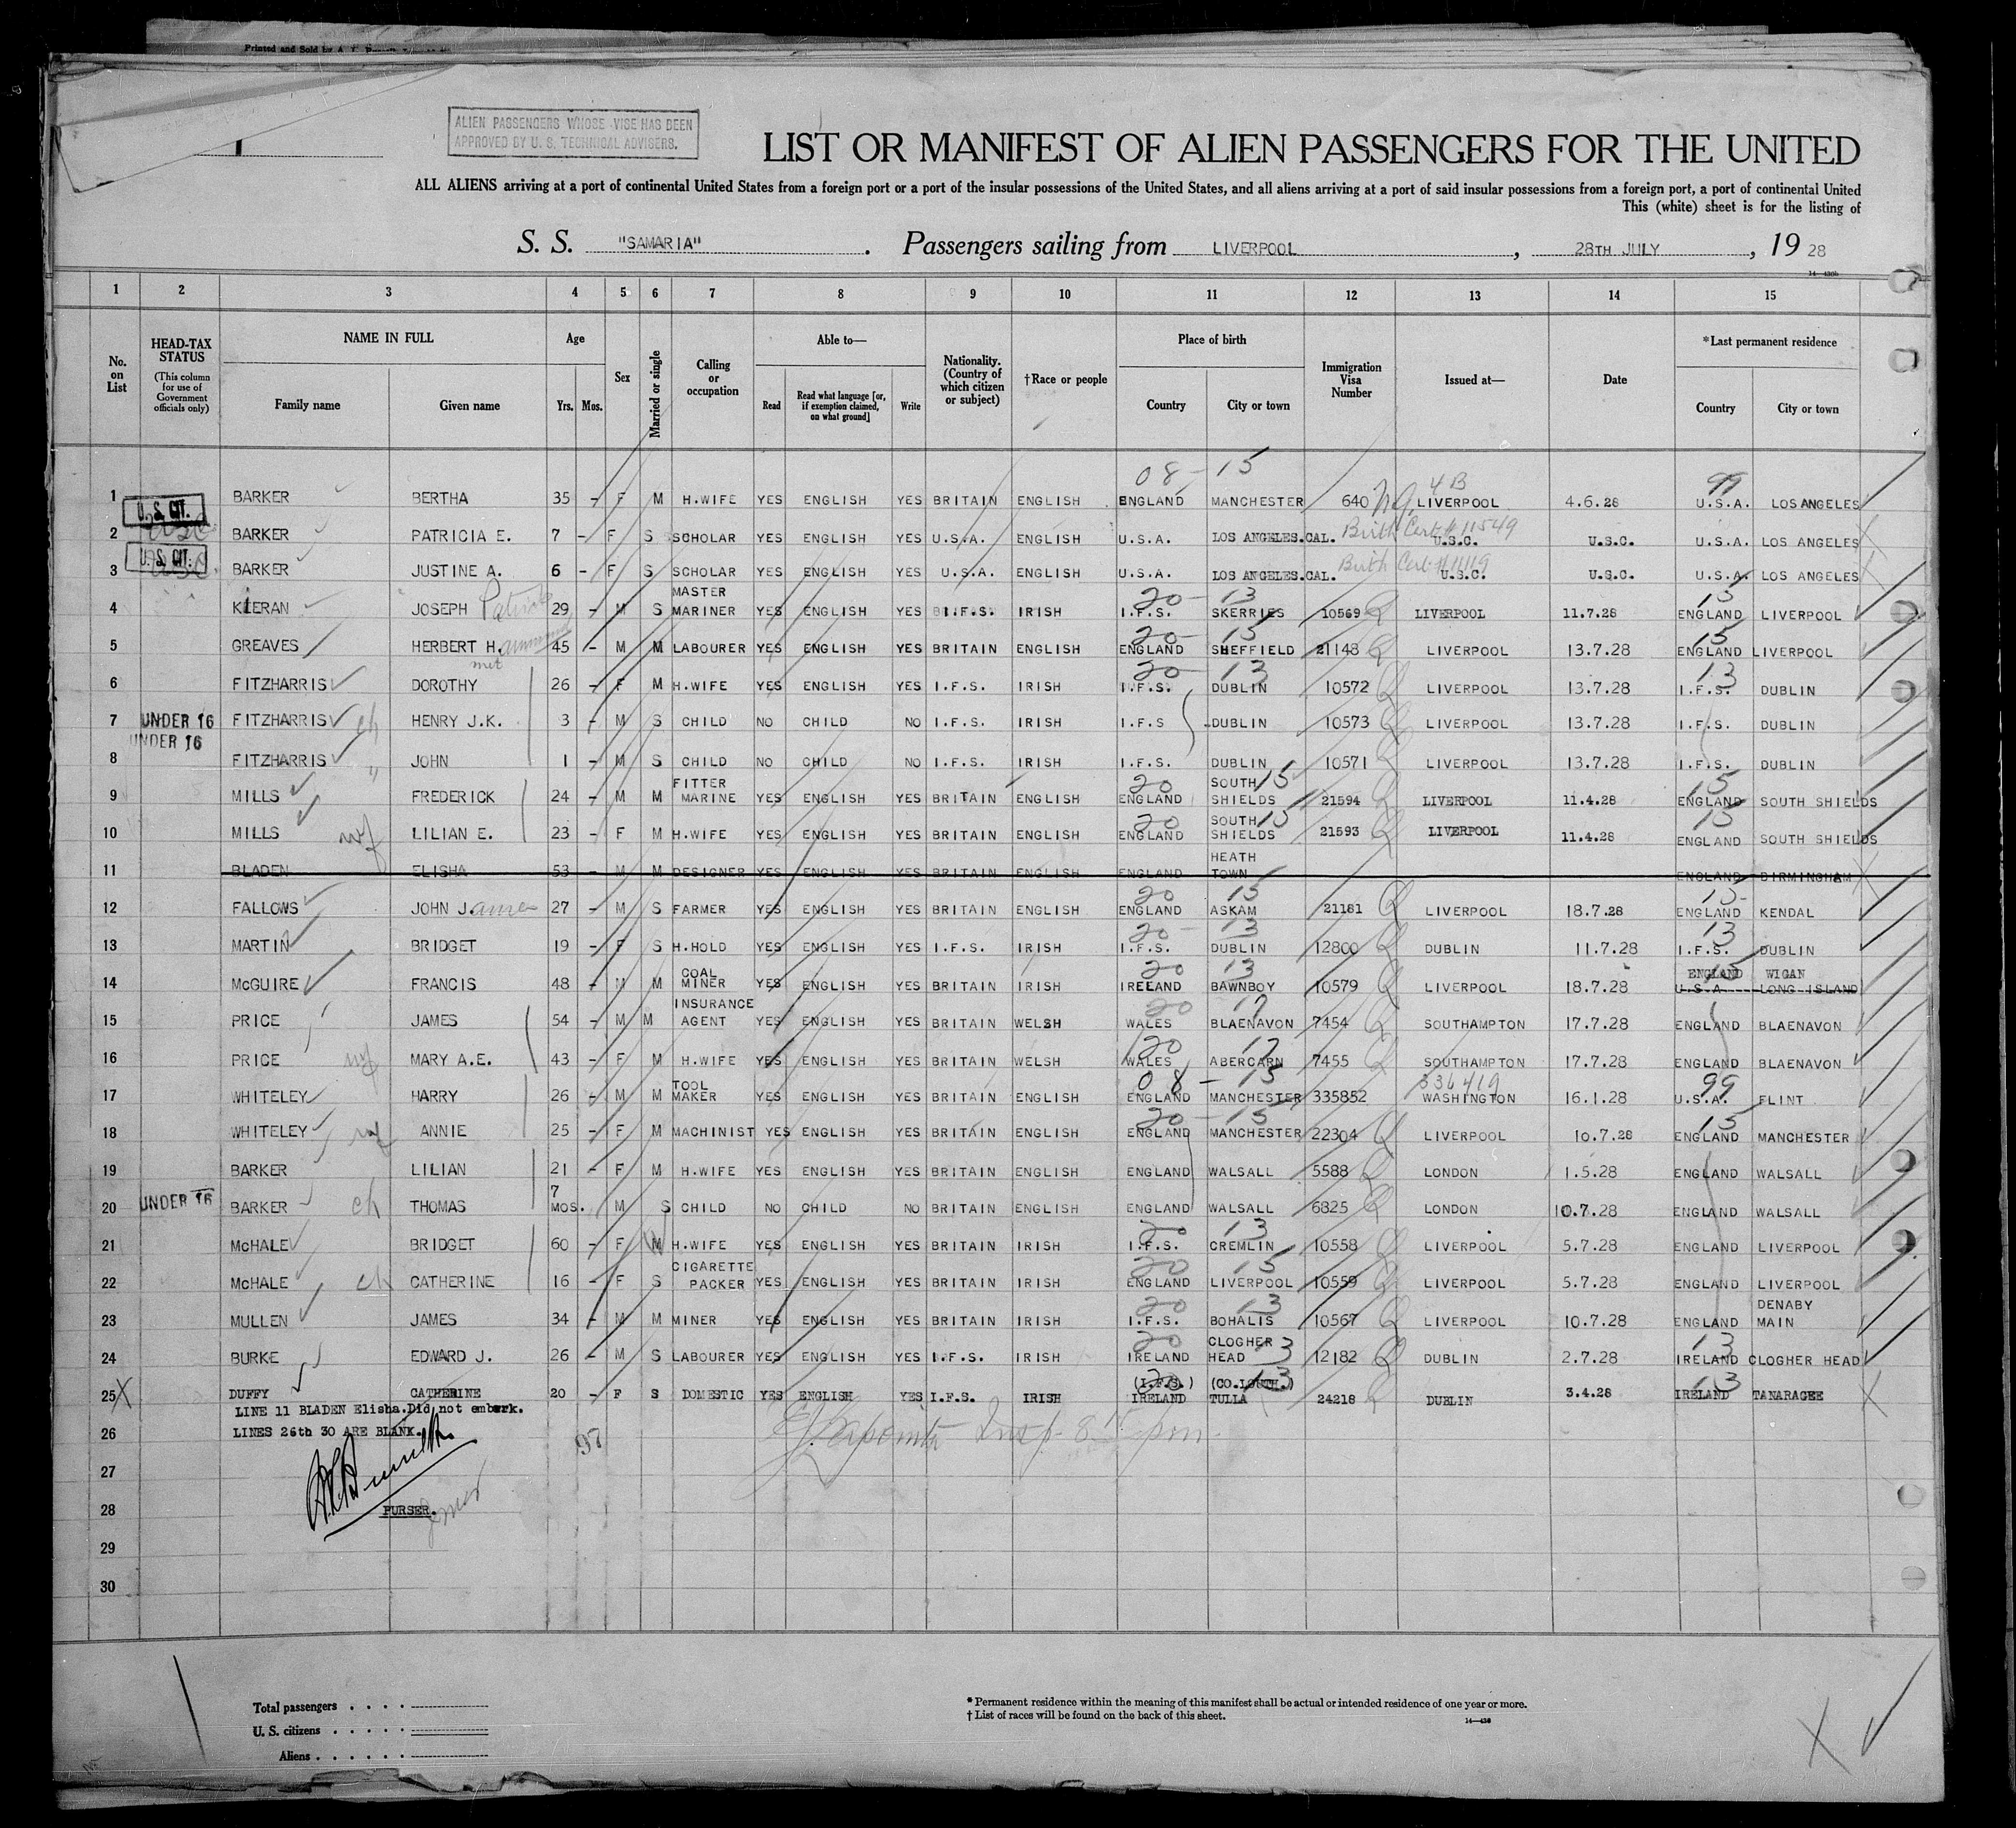 Printed and Sold by A. L.
ALIEN PASSENGERS WHOSE VISE HAS BEEN
APPROVED BY U. S. TECHNICAL ADVISERS.
LIST OR MANIFEST OF ALIEN PASSENGERS FOR THE UNITED
ALL ALIENS arriving at a port of continental United States from a foreign port or a port of the insular possessions of the United States, and all aliens arriving at a port of said insular possessions from a foreign port, a port of continental United
This (white) sheet is for the listing of
S. S. "SAMARIA". Passengers sailing from LIVERPOOL, 28TH JULY, 1928
1 2 3 4 5 6 7 8 9 10 11 12 13 14 15
No. on List
HEAD-TAX STATUS (This column for use of Government officials only)
NAME IN FULL Family name Given name
Age Yrs. Mos.
Sex
Married or single
Calling or occupation
Able to— Read Read what language [or, if exemption claimed, on what ground] Write
Nationality. (Country of which citizen or subject)
†Race or people
Place of birth Country City or town
Immigration Visa Number
Issued at—
Date
*Last permanent residence Country City or town
08-15 4B 99
1 BARKER BERTHA 35 - F M H.WIFE YES ENGLISH YES BRITAIN ENGLISH ENGLAND MANCHESTER 640 LIVERPOOL 4.6.28 U.S.A. LOS ANGELES
U. S. CIT. Birth Cert # 11549
2 BARKER PATRICIA E. 7 - F S SCHOLAR YES ENGLISH YES U.S.A. ENGLISH U.S.A. LOS ANGELES.CAL. U.S.C. U.S.C. U.S.A. LOS ANGELES
U. S. CIT. Birth Cert # 11119
3 BARKER JUSTINE A. 6 - F S SCHOLAR YES ENGLISH YES U.S.A. ENGLISH U.S.A. LOS ANGELES.CAL. U.S.C. U.S.C. U.S.A. LOS ANGELES
20-13 15
4 KIERAN JOSEPH Patrick 29 - M S MASTER MARINER YES ENGLISH YES I.F.S. IRISH I.F.S. SKERRIES 10569 LIVERPOOL 11.7.28 ENGLAND LIVERPOOL
20-15 15
5 GREAVES HERBERT H. 45 - M M LABOURER YES ENGLISH YES BRITAIN ENGLISH ENGLAND SHEFFIELD 21148 LIVERPOOL 13.7.28 ENGLAND LIVERPOOL
met 20-13 13
6 FITZHARRIS DOROTHY 26 - F M H.WIFE YES ENGLISH YES I.F.S. IRISH I.F.S. DUBLIN 10572 LIVERPOOL 13.7.28 I.F.S. DUBLIN
7 UNDER 16 FITZHARRIS ch HENRY J.K. 3 - M S CHILD NO CHILD NO I.F.S. IRISH I.F.S DUBLIN 10573 LIVERPOOL 13.7.28 I.F.S. DUBLIN
8 UNDER 16 FITZHARRIS " JOHN 1 - M S CHILD NO CHILD NO I.F.S. IRISH I.F.S. DUBLIN 10571 LIVERPOOL 13.7.28 I.F.S. DUBLIN
20 15 15
9 MILLS FREDERICK 24 - M M FITTER MARINE YES ENGLISH YES BRITAIN ENGLISH ENGLAND SOUTH SHIELDS 21594 LIVERPOOL 11.4.28 ENGLAND SOUTH SHIELDS
20 15 15
10 MILLS wf LILIAN E. 23 - F M H.WIFE YES ENGLISH YES BRITAIN ENGLISH ENGLAND SOUTH SHIELDS 21593 LIVERPOOL 11.4.28 ENGLAND SOUTH SHIELDS
11 BLADEN ELISHA 53 - M M DESIGNER YES ENGLISH YES BRITAIN ENGLISH ENGLAND HEATH TOWN ENGLAND BIRMINGHAM
20 15 15
12 FALLOWS JOHN James 27 - M S FARMER YES ENGLISH YES BRITAIN ENGLISH ENGLAND ASKAM 21181 LIVERPOOL 18.7.28 ENGLAND KENDAL
20-13 13
13 MARTIN BRIDGET 19 - F S H.HOLD YES ENGLISH YES I.F.S. IRISH I.F.S. DUBLIN 12800 DUBLIN 11.7.28 I.F.S. DUBLIN
20 13 15 ENGLAND WIGAN
14 McGUIRE FRANCIS 48 - M M COAL MINER YES ENGLISH YES BRITAIN IRISH IRELAND BAWNBOY 10579 LIVERPOOL 18.7.28 U.S.A. LONG ISLAND
20 17
15 PRICE JAMES 54 - M M INSURANCE AGENT YES ENGLISH YES BRITAIN WELSH WALES BLAENAVON 7454 SOUTHAMPTON 17.7.28 ENGLAND BLAENAVON
20 17
16 PRICE wf MARY A.E. 43 - F M H.WIFE YES ENGLISH YES BRITAIN WELSH WALES ABERCARN 7455 SOUTHAMPTON 17.7.28 ENGLAND BLAENAVON
08-15 336419 99
17 WHITELEY HARRY 26 - M M TOOL MAKER YES ENGLISH YES BRITAIN ENGLISH ENGLAND MANCHESTER 335852 WASHINGTON 16.1.28 U.S.A. FLINT
20-15 15
18 WHITELEY wf ANNIE 25 - F M MACHINIST YES ENGLISH YES BRITAIN ENGLISH ENGLAND MANCHESTER 22304 LIVERPOOL 10.7.28 ENGLAND MANCHESTER
19 BARKER LILIAN 21 - F M H.WIFE YES ENGLISH YES BRITAIN ENGLISH ENGLAND WALSALL 5588 LONDON 1.5.28 ENGLAND WALSALL
20 UNDER 16 BARKER ch THOMAS 7 MOS. M S CHILD NO CHILD NO BRITAIN ENGLISH ENGLAND WALSALL 6825 LONDON 10.7.28 ENGLAND WALSALL
20 13
21 McHALE BRIDGET 60 - F M H.WIFE YES ENGLISH YES BRITAIN IRISH I.F.S. CREMLIN 10558 LIVERPOOL 5.7.28 ENGLAND LIVERPOOL
20 15
22 McHALE ch CATHERINE 16 - F S CIGARETTE PACKER YES ENGLISH YES BRITAIN IRISH ENGLAND LIVERPOOL 10559 LIVERPOOL 5.7.28 ENGLAND LIVERPOOL
20 13
23 MULLEN JAMES 34 - M M MINER YES ENGLISH YES BRITAIN IRISH I.F.S. BOHALIS 10567 LIVERPOOL 10.7.28 ENGLAND DENABY MAIN
20 13 13
24 BURKE EDWARD J. 26 - M S LABOURER YES ENGLISH YES I.F.S. IRISH IRELAND CLOGHER HEAD 12182 DUBLIN 2.7.28 IRELAND CLOGHER HEAD
(I.F.S.) (CO.LOUTH.) 20 13 13
25 X DUFFY CATHERINE 20 - F S DOMESTIC YES ENGLISH YES I.F.S. IRISH IRELAND TULLA 24218 DUBLIN 3.4.28 IRELAND TANARAGEE
LINE 11 BLADEN Elisha.Did not embark.
26 LINES 26th 30 ARE BLANK.
97
27
28 PURSER.
29
30
Total passengers
U. S. citizens
Aliens
* Permanent residence within the meaning of this manifest shall be actual or intended residence of one year or more.
† List of races will be found on the back of this sheet.